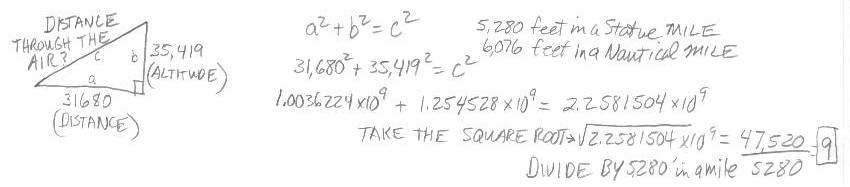 DISTANCE
THROUGH THE
AIR?
c
b
35,419
(ALTITUDE)
a
31680
(DISTANCE)
a² + b² = c²
5,280 feet in a Statue MILE
6,076 feet in a Nautical MILE
31,680² + 35,419² = c²
1.0036224 x10⁹ + 1.254528 x10⁹ = 2.2581504 x10⁹
TAKE THE SQUARE ROOT→ √2.2581504 x10⁹ = 47,520 = 9
DIVIDE BY 5280' in a mile 5280